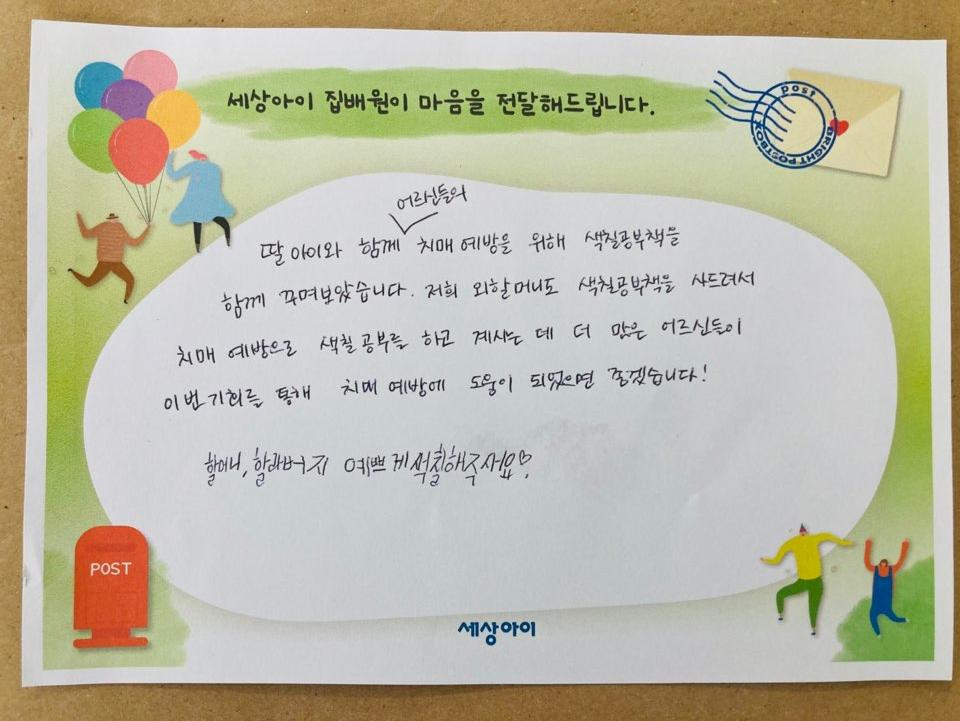 세상아이 집배원이 마음을 전달해드립니다.
post
BRIGHT POSTBOX
어르신들의
딸 아이와 함께 치매 예방을 위해 색칠공부책을
함께 꾸며보았습니다. 저희 외할머니도 색칠공부책을 사드려서
치매 예방으로 색칠공부를 하고 계시는 데 더 많은 어르신들이
이번기회를 통해 치매 예방에 도움이 되었으면 좋겠습니다!
할머니, 할아버지 예쁘게 색칠해주세요♡
POST
세상아이